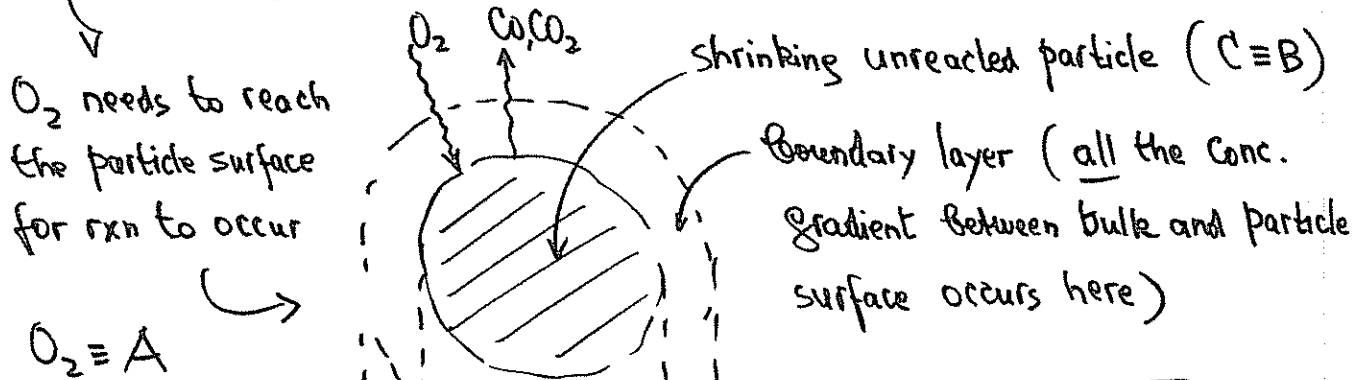 O₂ needs to reach
the particle surface
for rxn to occur
O₂ ≡ A
O₂ CO,CO₂
shrinking unreacted particle (C≡B)
boundary layer (all the conc.
gradient between bulk and particle
surface occurs here)